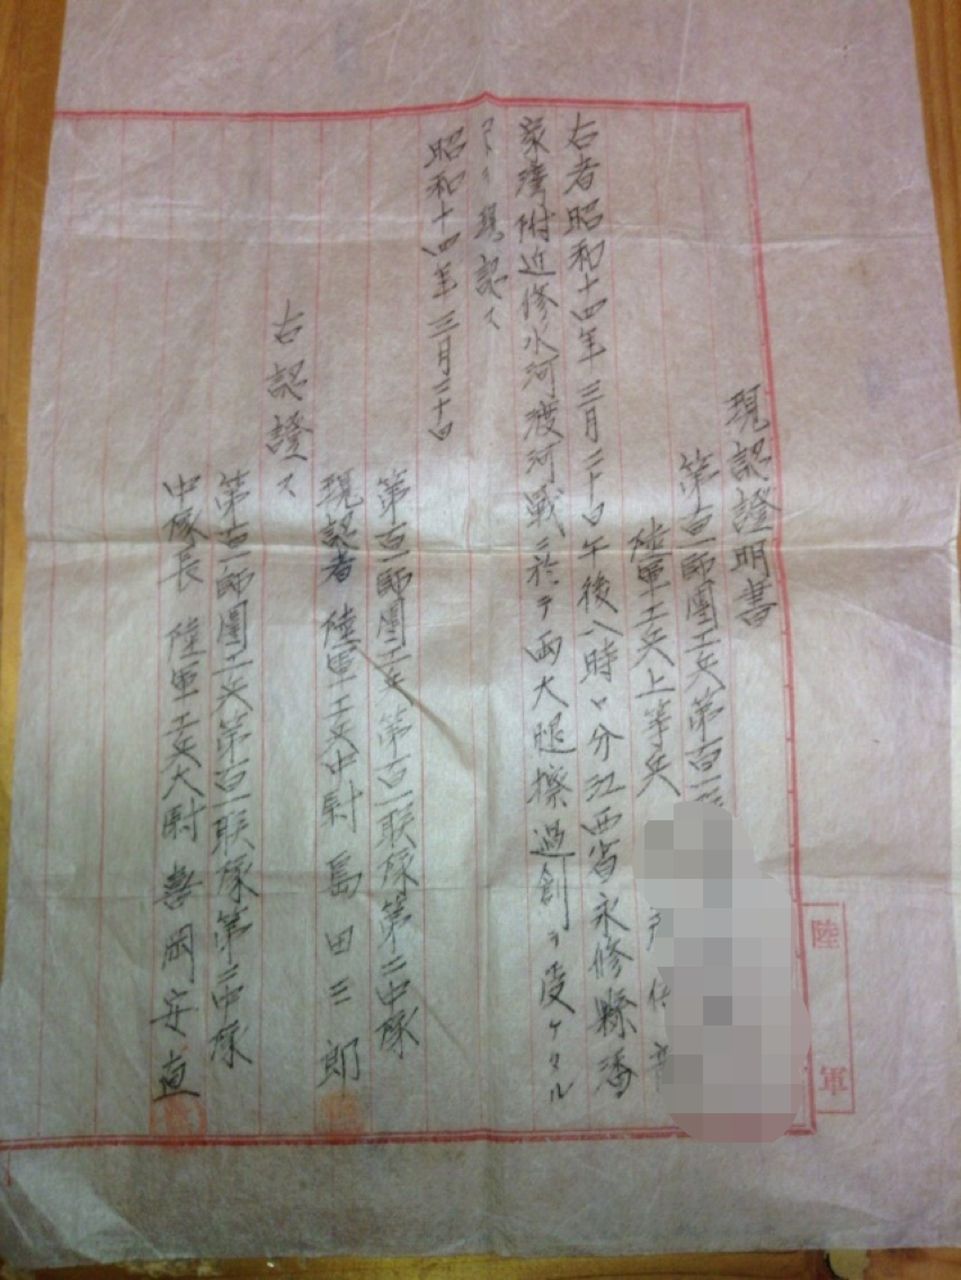 現認證明書
第百一師團工兵第百一
陸軍工兵上等兵
右者昭和十四年三月二十日午後八時〇分江西省永修縣潘
家灣附近修水河渡河戰ニ於テ兩大腿擦過創ヲ受ケタル
ヿヲ現認ス
昭和十四年三月二十日
第百一師團工兵第百一联隊第二中隊
現認者 陸軍工兵中尉 島田三郎
右認證ス
第百一師團工兵第百一联隊第二中隊
中隊長 陸軍工兵大尉 喜岡安直
陸軍